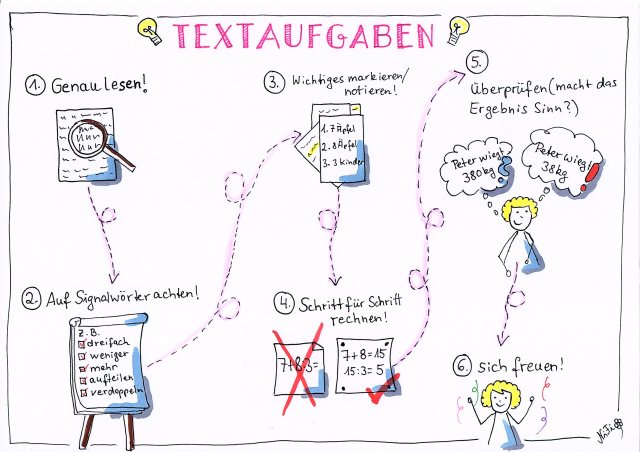 TEXTAUFGABEN
1. Genau lesen!
2. Auf Signalwörter achten!
z.B.
dreifach
weniger
mehr
aufteilen
verdoppeln
3. Wichtiges markieren/
notieren!
1. 7 Äpfel
2. 8 Äpfel
3. 3 Kinder
4. Schritt für Schritt
rechnen!
7+8:3=
7+8=15
15:3=5
5.
Überprüfen (macht das
Ergebnis Sinn?)
Peter wiegt
380kg
?
Peter wiegt
38kg
!
6. sich freuen!